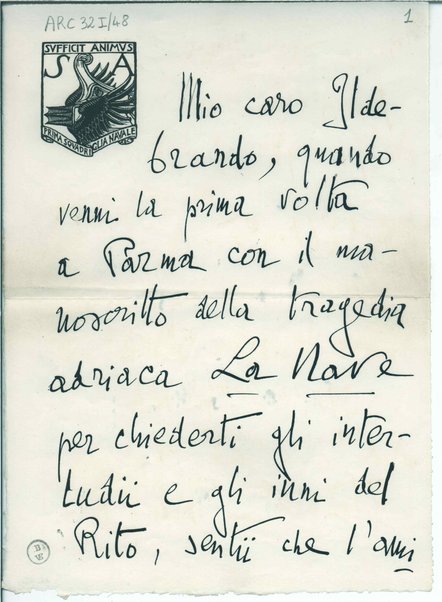 ARC 32 I/48
1
SVFFICIT ANIMVS
S A
PRIMA SQVADRIGLIA NAVALE
Mio caro Ilde-
brando, quando
venni la prima volta
a Parma con il ma-
noscritto della tragedia
adriaca La Nave
per chiederti gli inter-
ludii e gli inni del
Rito, sentii che l'ami